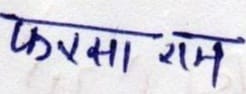 फरसा राम